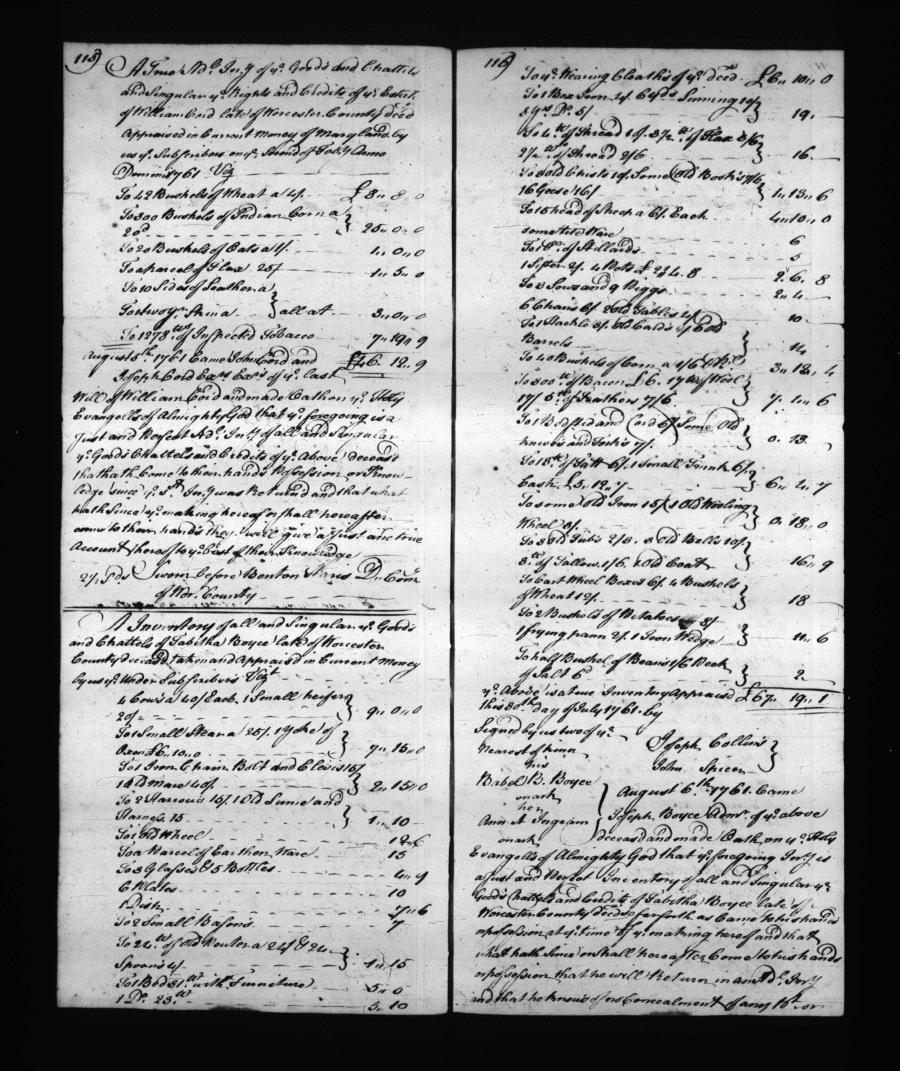 115)
A True Ad.l Inv.y of y.e Goods and Chattels
and Singular y.e Rights and Credits of y.e Estate
of William Cord late of Worcester County deced
Appraised in Current Money of Maryland by
us y.e Subscribers on y.e Second of Feb.y Anno
Domini 1761 Viz
To 42 Bushels of Wheat a 4/. £ 8 " 8 " 0
To 300 Bushels of Indian Corn a
20d } 25 " 0 " 0
To 20 Bushels of Oats a 1/. 1 " 0 " 0
To a parcel of Flax 25/ 1 " 5 " 0
To 10 Sides of Leather a
To two y.r } all at 3 " 0 " 0
To 1278 wt of Inspected Tobacco 7 " 19 " 9
August 5th 1761 Came John Cord and £46 . 12 . 9
Joseph Cord Ex.rs of y.e last
Will of William Cord and made Oath on y.e Holy
Evangells of Almighty God that y.e foregoing is a
Just and Perfect Ad.l Inv.y of all and Singular
y.e Goods Chattels and Credits of y.e Above deceased
that hath Come to their hands Possession or Know-
ledge since y.e Inv.y was Returned and that what
hath Since y.e making hereof or shall hereafter
come to their hands they will give a Just and true
Account thereof to y.e best of their Knowledge
Sworn before Benton Harris D. Com
of Wor. County
A Inventory of all and Singular y.e Goods
and Chattels of Tabitha Boyce late of Worcester
County deceasd taken and Appraisd in Current Money
by us y.e Under Subscribers Viz.t
4 Cows a 40/ Each, 1 Small heifer
20/ } 9 " 0 " 0
To 1 Small Stear a 25/. 1 Yoke of
Oxen £6 " 10 " 0 } 7 " 15 " 0
To 1 Iron Chain Bolt and Clevis 15/
1 Old Mare 40/. } 2 " 15 " 0
To 2 Harrows 15/. 1 Old and
Hames 15 } 1 " 10
To 1 Old Wheel
To a Parcel of Earthen Ware 15
To 3 Glasses & 5 Bottles 4 " 9
6 Plates 10
1 Dish 7 " 6
To 2 Small Basons 7
To 24 lb of Old Pewter a 24/ & 24
Spoons 4/. } 1 " 15
To 1 Bed 81 wt with Furniture 5 " 0
1 D.o 23 wt 5 " 10
116)
To y.e Wearing Cloaths of y.e deced £6 " 10 " 0
To 1 Box Iron 2/. 64 Linning 10/
& 4 D.o 5/ } 19 .
To 4 wt of Thread 10/. 8 1/2 wt of Flax 3/6
2 1/2 wt of Thread 2/6 } 16
To 3 old Chists 19/. Some Old Books 7/6
16 Geese 16/ } 1 " 13 " 6
To 15 head of Sheep a 6/. Each 4 " 10 " 0
some Ware 6
To 1 p.r of Stillards 5
1 Sifter 2/. 4 Pots £2 " 4 . 8 2 . 6 . 8
To 3 Sows and 9 Piggs 2 " 4
6 Chairs 6/ 2 old Tables 4/ 10
To 1 Hackle 8/. Old Cards 2/6 Old
Barrels } 14
To 40 Bushels of Corn a 1/6 3 " 18 " 4
To 300 wt of Bacon £6 . 17 wt of Wool
17/ 5 wt of Feathers 7/6 } 7 . 4 " 6
To 1 Bedstid and Cord 6/ Some Old
knives and forks 7/. } 0 . 13
To 18 wt of Salt 6/. 1 Small Trunk 6/.
Cash £5 . 12 . 7 } 6 " 4 " 7
To some old Iron 15/ 1 Old Wooling
Wheel 3/. } 0 . 18 . 0
To 3 Old Tubs 2/8 . 3 old Bells 10/.
8 wt of Tallow 1/6 . 1 Old Coat } 16 " 9
To Cart Wheel Boxes 6/ 4 Bushels
of Wheat 12/. } 18
To 2 Bushels of Potatoes
1 frying pann 2/. 1 Iron Wedge } 11 " 6
To half Bushel of Beans 1/6 Peck
of Salt 6d } 2
y.e Above is a true Inventory Appraisd £67 " 19 " 1
this 30th day of July 1761. by
Signed by us two of y.e
Nearest of kinn Joseph Collins
his John Spicer
Babel B. Boyce
mark August 6th 1761. Came
her
Ann A Ingram Joseph Boyce Adm.r of y.e above
mark deceasd and made Oath on y.e Holy
Evangells of Almighty God that y.e foregoing Inv.y is
a Just and Perfect Inventory of all and Singular y.e
Goods Chattels and Credits of Tabitha Boyce late of
Worcester County deced so far forth as Came to his hands
or possession at y.e time of y.e making hereof and that
what hath Since or shall hereafter Come to his hands
or possession that he will Return in an Ad.l Inv.y
and that he knows of no Concealment of any Part or